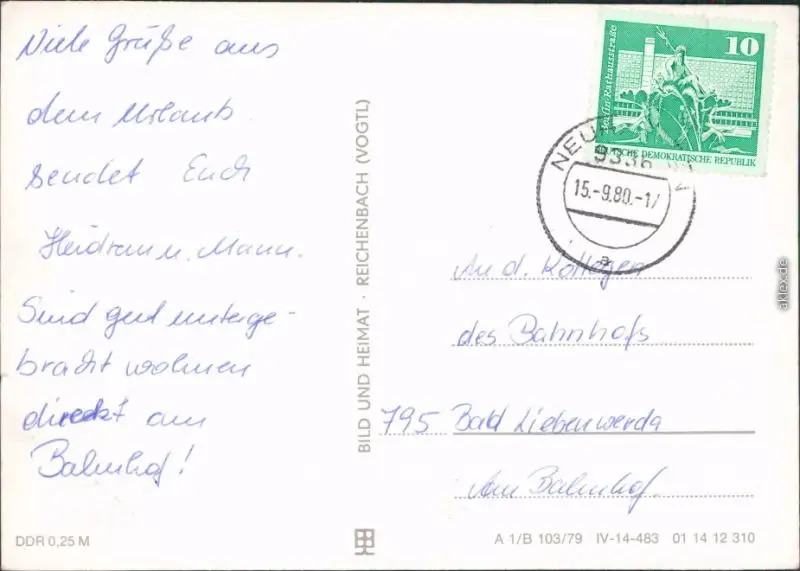 Viele Grüße aus
dem Urlaub
sendet Euch
Heidrun u. Mann.
Sind gut unterge-
bracht wohnen
direckt am
Bahnhof!
DDR 0,25 M
BILD UND HEIMAT · REICHENBACH (VOGTL)
10
Berlin, Rathausstraße
DEUTSCHE DEMOKRATISCHE REPUBLIK
15.-9.80.-17
a
An d. Kollegen
des Bahnhofs
795 Bad Liebenwerda
Am Bahnhof.
A 1/B 103/79 IV-14-483 01 14 12 310
aklex.de